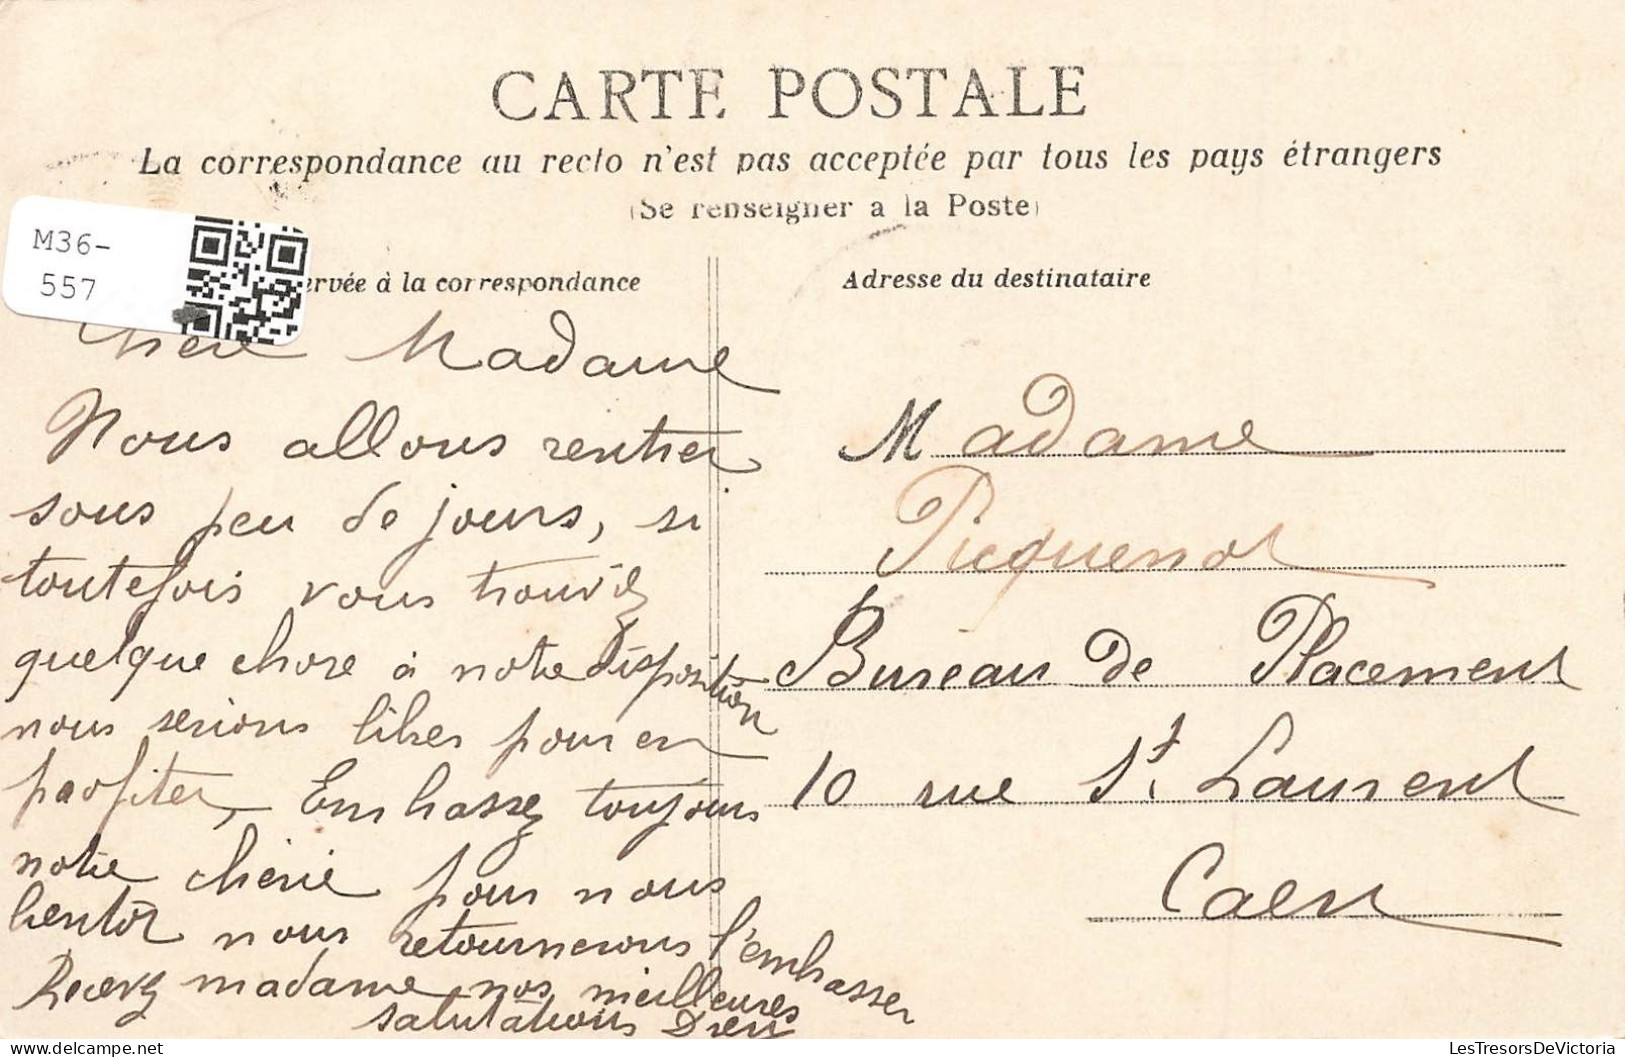 CARTE POSTALE
La correspondance au recto n'est pas acceptée par tous les pays étrangers
(Se renseigner à la Poste)
M36-
557
ervée à la correspondance
Adresse du destinataire
Chère Madame
Nous allons rentrer
sous peu de jours, si
toutefois vous trouviez
quelque chose à notre disposition
nous serions libres pour en
profiter, Embrassez toujours
notre chérie pour nous
bientôt nous retournerons l'embrasser
Recevez madame nos meilleures
salutations
Madame
Picquenot
Bureau de Placement
10 rue St. Laurent
Caen
M36-557.jpg
LesTresorsDeVictoria